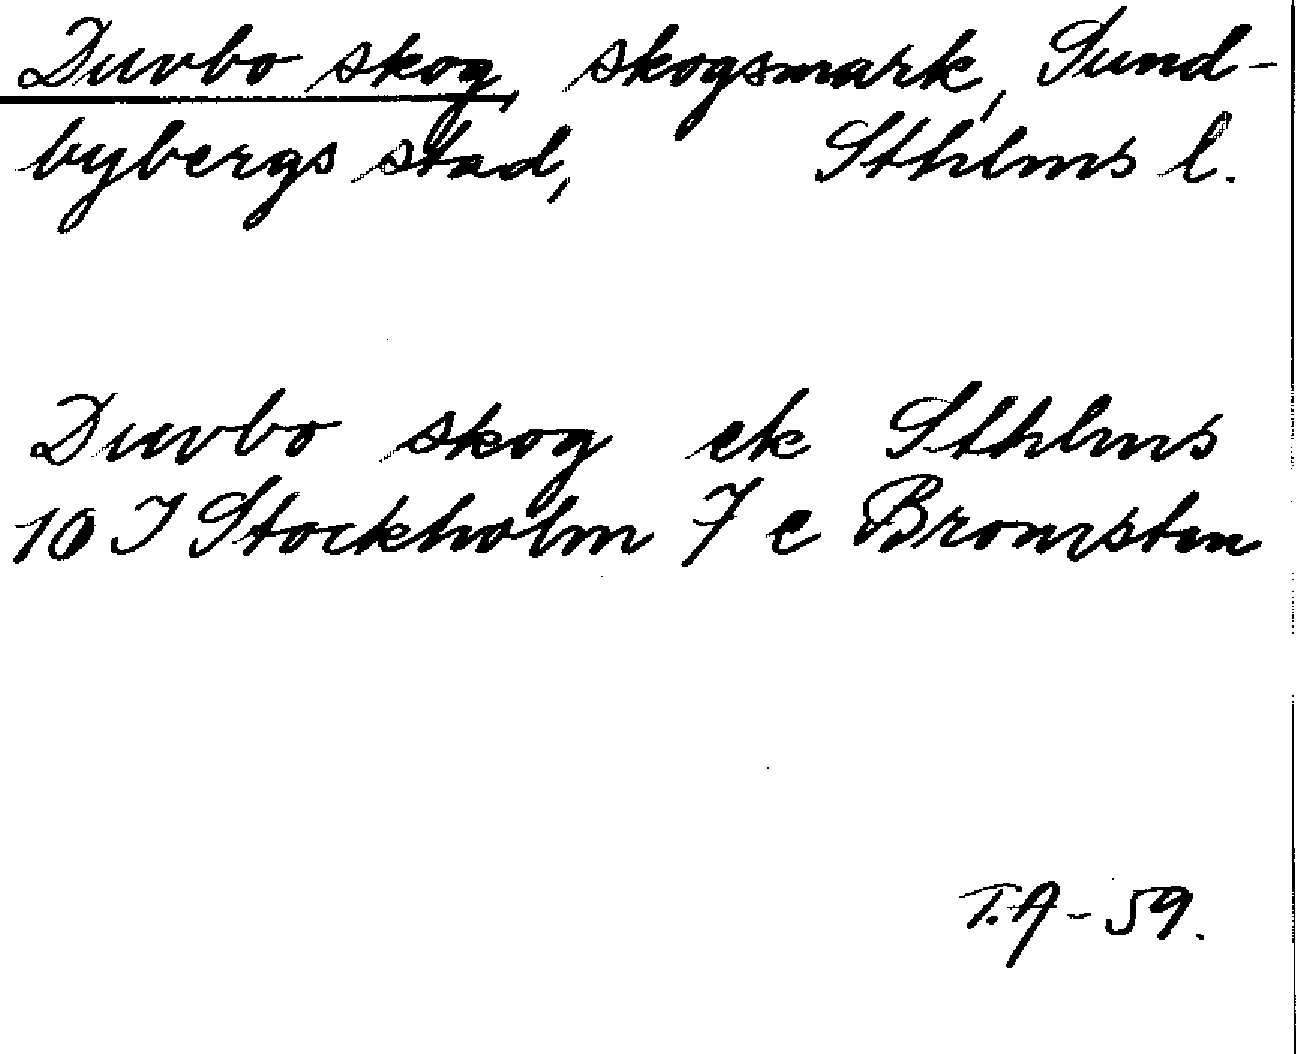 Duvbo skog, skogsmark, Sund-
bybergs stad, Sthlms l.
Duvbo skog ek Sthlms
10 I Stockholm 7 e Bromsten
T.A - 59.